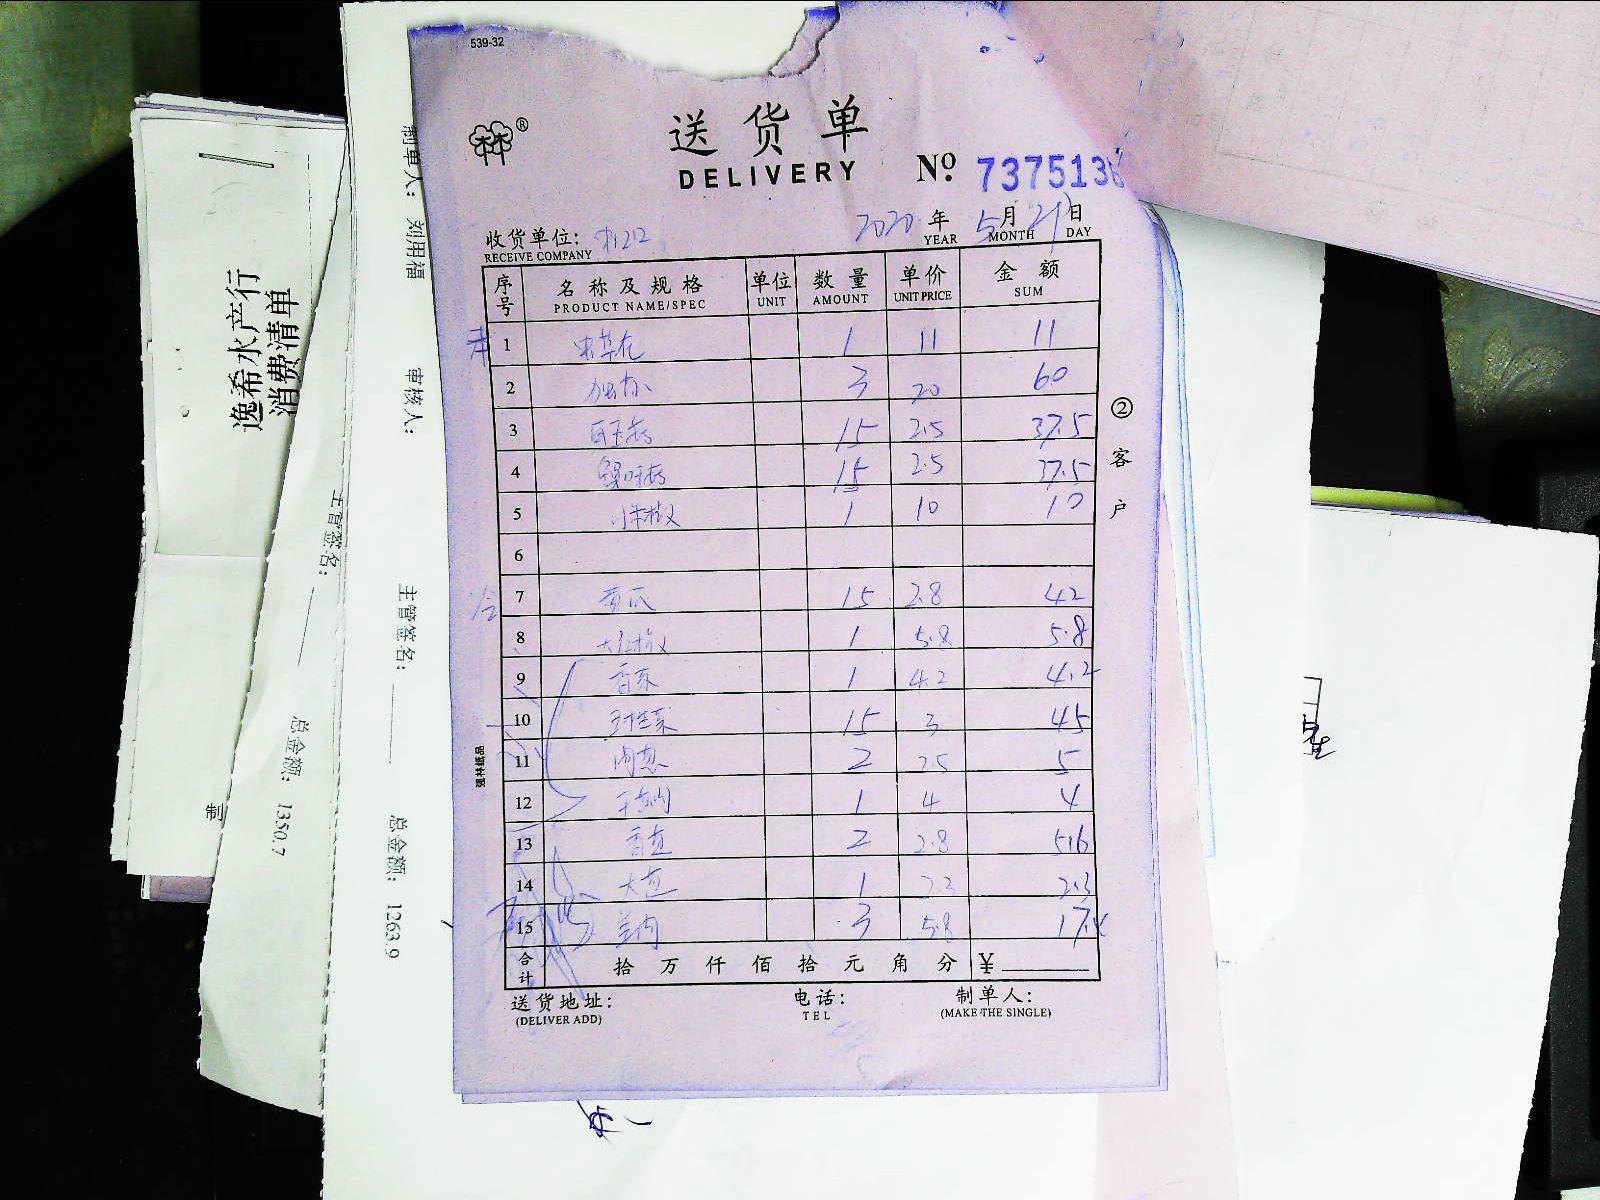 539-32
送货单
DELIVERY
№ 737513
收货单位：
RECEIVE COMPANY
2020 年 5 月 21 日
YEAR MONTH DAY
序号 名称及规格 单位 数量 单价 金额
PRODUCT NAME/SPEC UNIT AMOUNT UNIT PRICE SUM
1 虫草花 1 11 11
2 3 20 60
3 白玉菇 15 2.5 37.5
4 15 2.5 37.5
5 小米椒 1 10 10
6
7 黄瓜 15 2.8 42
8 大红椒 1 5.8 5.8
9 香菜 1 4.2 4.2
10 15 3 45
11 肉葱 2 2.5 5
12 1 4 4
13 香芹 2 2.8 5.6
14 大芹 1 2.3 2.3
15 3 5.8 17.4
合计 拾万仟佰拾元角分 ¥
送货地址：
(DELIVER ADD)
电话：
TEL
制单人：
(MAKE THE SINGLE)
②客户
强林纸品
逸希水产行
消费清单
制
主管签名：
总金额： 1350.7
制单人： 刘用福
审核人：
主管签名：
总金额： 1263.9